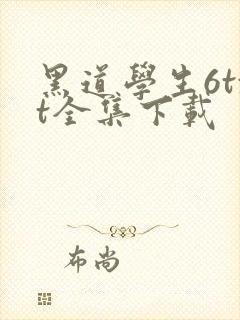 黑道學生6tx
t全集下載
布尚